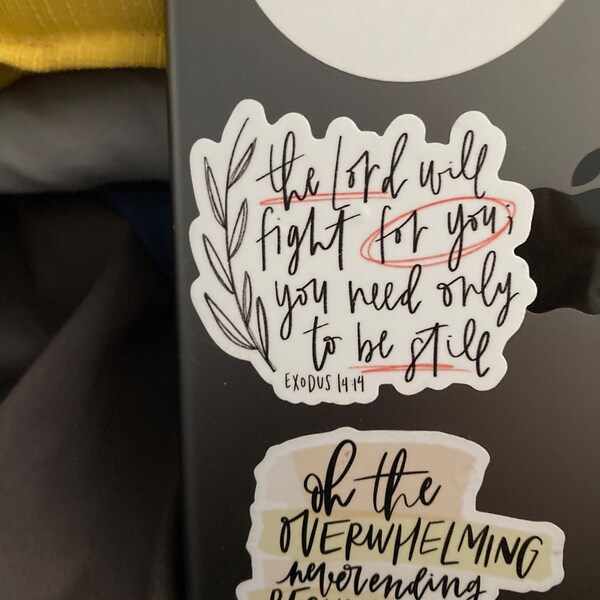 the lord will
fight for you;
you need only
to be still
EXODUS 14:14
oh the
OVERWHELMING
neverending